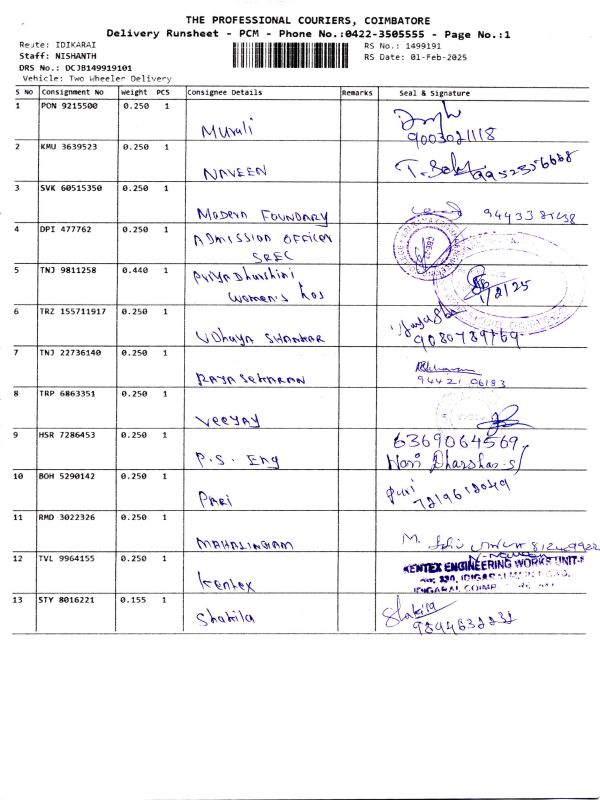 THE PROFESSIONAL COURIERS, COIMBATORE
Delivery Runsheet - PCM - Phone No.:0422-3505555 - Page No.:1
Route: IDIKARAI
RS No.: 1499191
Staff: NISHANTH
RS Date: 01-Feb-2025
DRS No.: DCJB149919101
Vehicle: Two Wheeler Delivery
S No Consignment No Weight PCS Consignee Details Remarks Seal & Signature
1 PON 9215500 0.250 1
Murali 9003021118
2 KMU 3639523 0.250 1
NAVEEN
3 SVK 60515350 0.250 1
MODERN FOUNDARY
4 DPI 477762 0.250 1
ADMISSION OFFICER
SREC
5 TNJ 9811258 0.440 1
Priya Dharshini
Women's Hos 1/2/25
6 TRZ 155711917 0.250 1
UDHAYA SHANKAR 9080789769
7 TNJ 22736140 0.250 1
RAYASEKARAN 94421 06183
8 TRP 6863351 0.250 1
VEEYAY
9 HSR 7286453 0.250 1
6369064569
P.S. Eng Hari Dharshan.S
10 BOH 5290142 0.250 1
Pari Pari
11 RMD 3022326 0.250 1
MAHALINGAM M.
12 TVL 9964155 0.250 1
KENTEX ENGINEERING WORKS UNIT-
Kentex
13 STY 8016221 0.155 1
Shakila Shakila